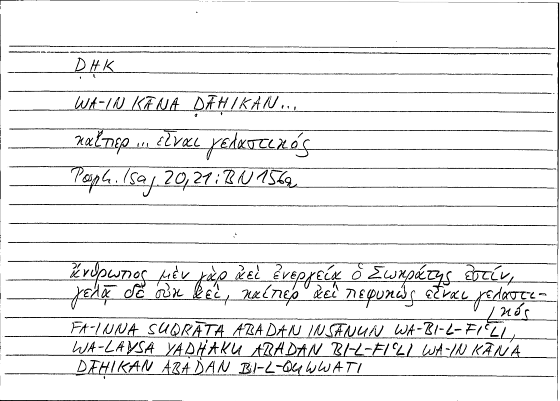 ḌḤK
WA-IN KĀNA ḌĀḤIKAN...
καίπερ ... εἶναι γελαστικός
Porph. Isag. 20,21: BN 156a
ἄνθρωπος μὲν γὰρ ἀεὶ ἐνεργείᾳ ὁ Σωκράτης ἐστίν,
γελᾷ δὲ οὐκ ἀεί, καίπερ ἀεὶ πεφυκὼς εἶναι γελαστι-
κός
FA-INNA SUQRĀṬA ABADAN INSĀNUN WA-BI-L-FIʿLI,
WA-LAYSA YAḌḤAKU ABADAN BI-L-FIʿLI WA-IN KĀNA
ḌĀḤIKAN ABADAN BI-L-QUWWATI